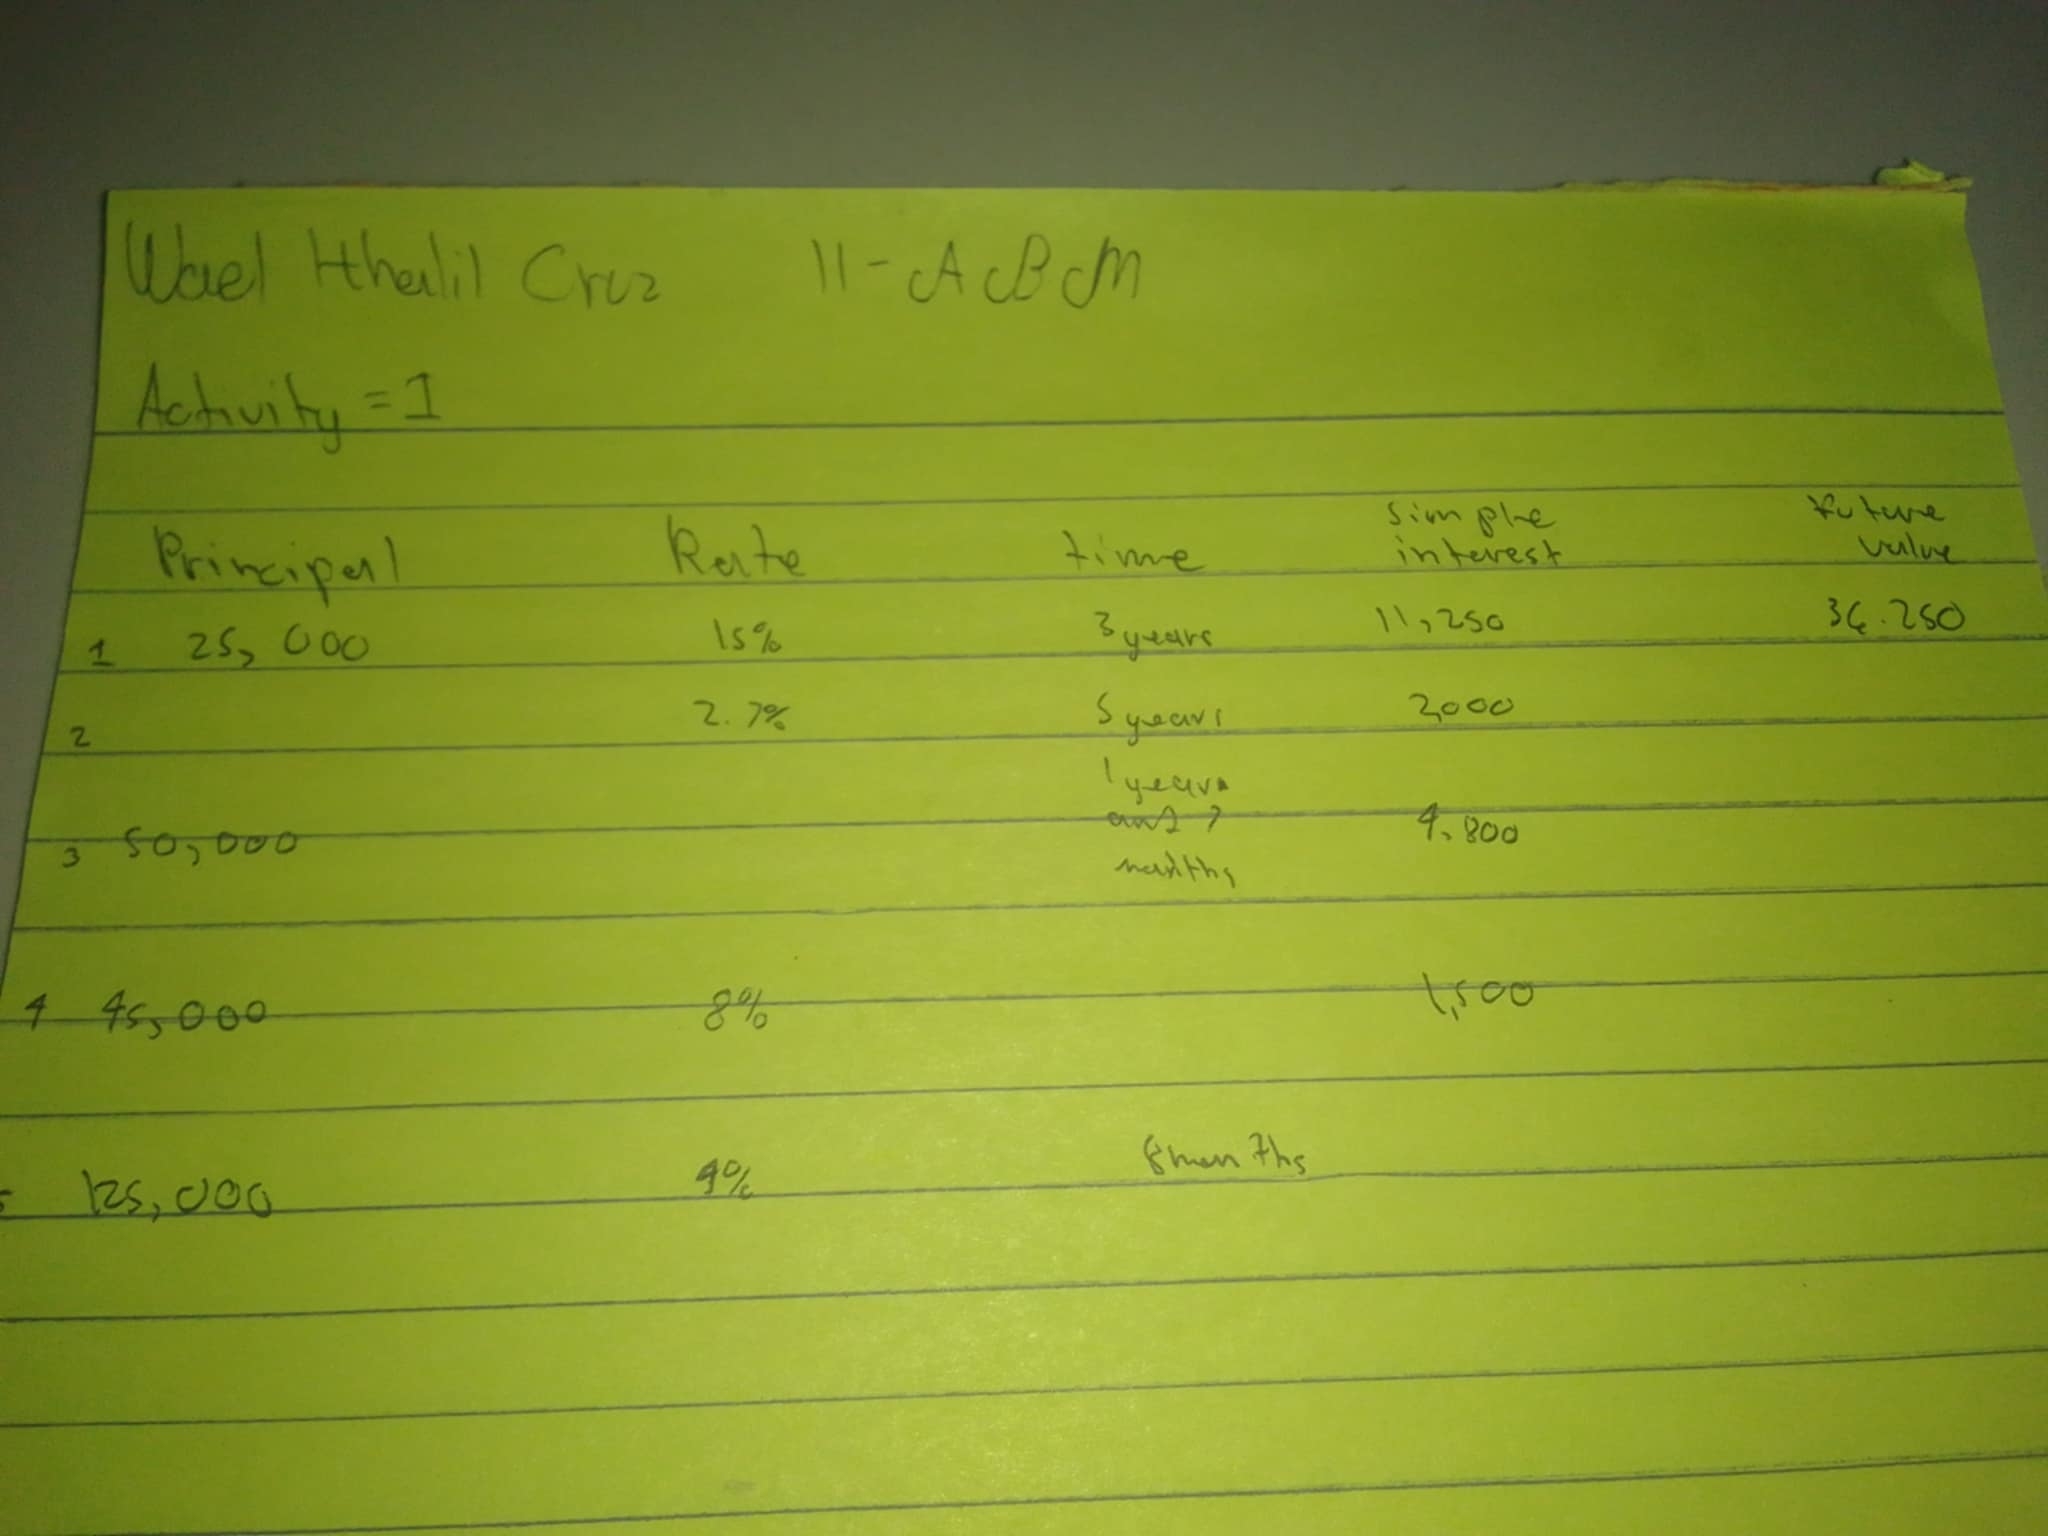 Wael Khalil Cruz 11-ABM
Activity = 1
Principal Rate time simple interest future value
1 25,000 15% 3 years 11,250 36.250
2 2.7% 5 years 2,000
3 50,000 1 year and 7 months 4,800
4 45,000 8% 1,500
5 125,000 4% 8 months